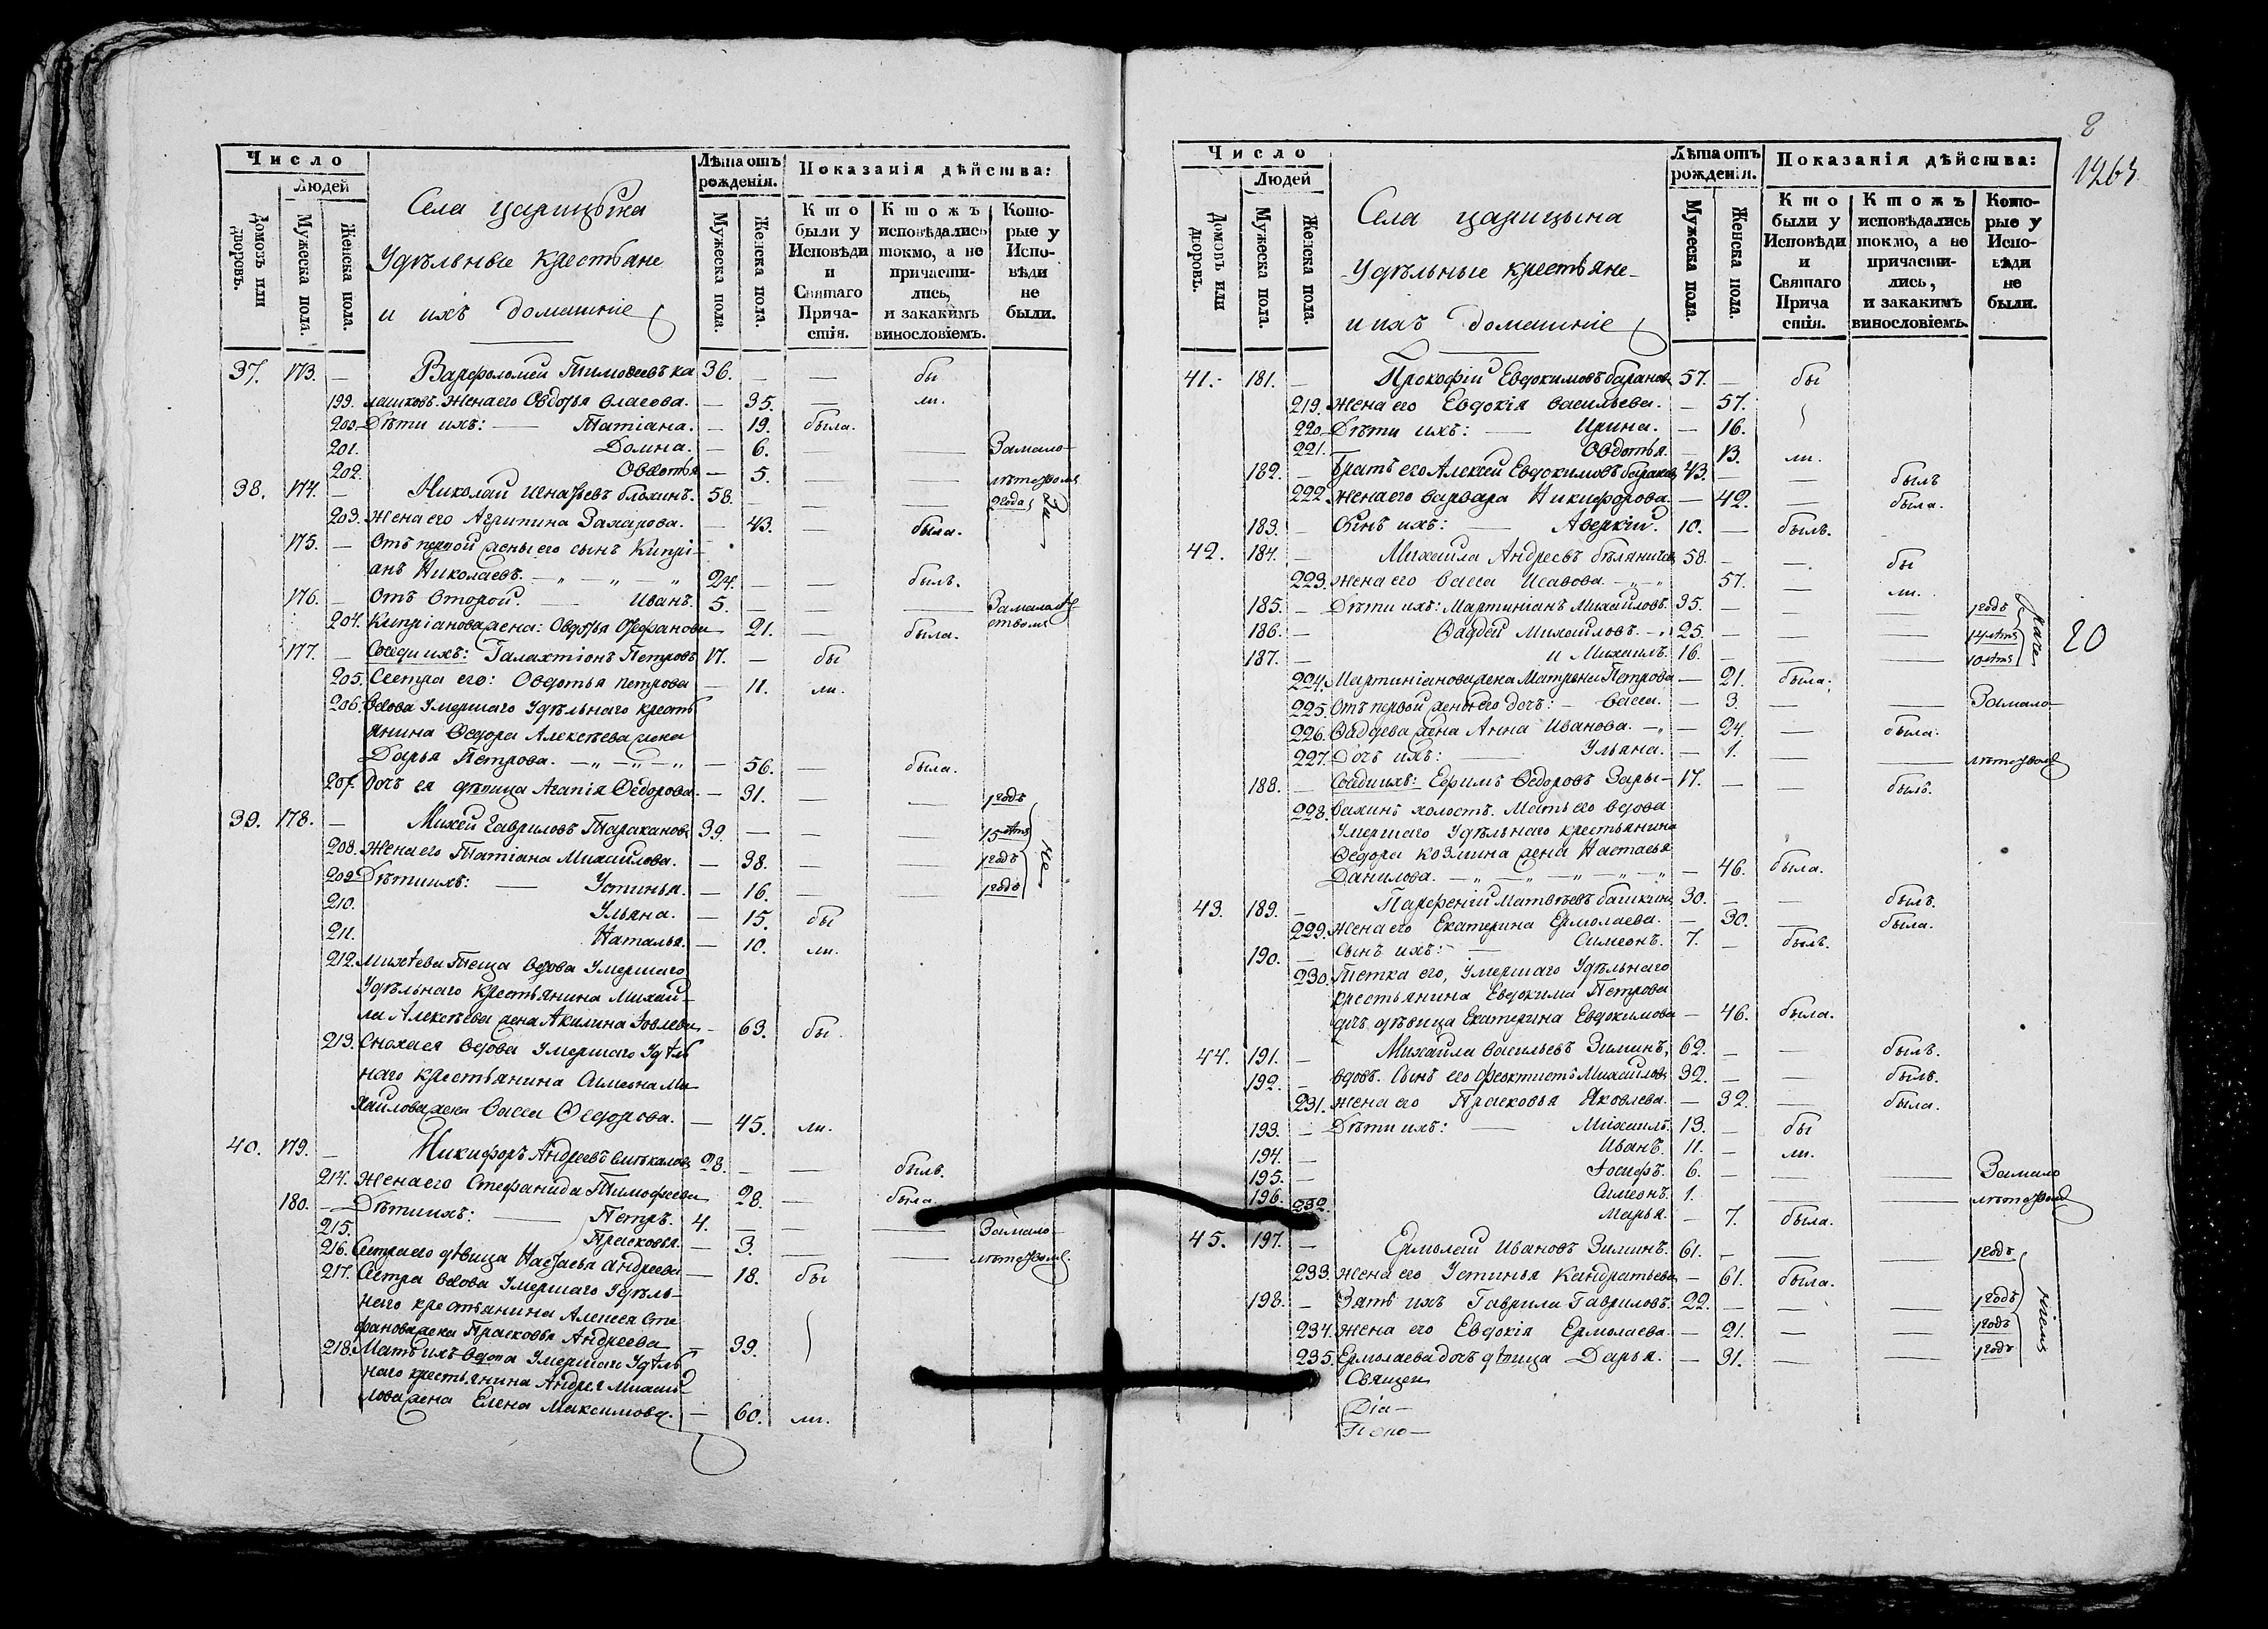 Число
Людей
Домовъ или дворовъ.
Мужеска пола.
Женска пола.
Села царицына
Удѣльные крестьяне
и ихъ домашніе
Лѣта отъ рожденія.
Мужеска пола.
Женска пола.
Показанія дѣйства:
Кто были у Исповѣди и Святаго Причастія.
Ктожъ исповѣдались токмо, а не причастились, и закакимъ винословіемъ.
Которые у Исповѣди не были.
37. 173. — Варфоломей Тимофеевъ ка 36. — — бы
199. лашковъ. Жена его Овдотья власова. — 35. — ли.
200. Дѣти ихъ: — Татіана. — 19. была.
201. Домна. — 6. — — Замало-
202. Овдотья — 5. — — лѣтством
38. 174. — Николай Игнатьевъ блохинъ. 58. — — — 2 года
203. Жена его Агрипина Захарова. — 43. — была.
175. — Отъ первой жены его сынъ Кипрі-
анъ Николаевъ. — „ — „ — „ 24. — — былъ.
176. — Отъ Второй. — Иванъ. 5. — — — Замалолѣ
204. Кипріанова жена: Овдотья Стефанова 21. — была. ством
177. — Соседи ихъ: Галахтіонъ Петровъ 17. — бы
205. Сестра его: Овдотья петрова — 11. ли.
206. Вдова Умершаго Удѣльнаго кресть
янина Федора Алексѣева жена
Дарья Петрова. — „ — „ — „ — 56. — была.
207. Дочь ея дѣвица Агапія Федорова. — 31. — — 1 годъ
39. 178. — Михей Гавриловъ Таракановъ 39. — — — 15 лѣтъ
208. Жена его Татіана Михайлова. — 38. — — 1 годъ
209. Дѣти ихъ: — Устинья. — 16. — — 1 годъ
210. Ульяна. — 15. бы
211. Наталья. — 10. ли.
212. Михѣева Теща Вдова Умершаго
Удѣльнаго Крестьянина Михай-
ла Алексѣева жена Акилина Іовлева — 63. бы
213. Сноха ея Вдова Умершаго Удѣль
наго Крестьянина Симеона Ми-
хайлова жена Васса Федорова. — 45. ли.
40. 179. — Никифоръ Андреевъ 28. — — былъ.
214. Жена его Стефанида Тимофеева 28. — была.
180. — Дѣти ихъ: — Петръ. 4. — — — Замало-
215. Прасковья. — 3. — — лѣтством.
216. Сестра его дѣвица Настасья Андреева — 18. бы
217. Сестра Вдова Умершаго Удѣль-
наго крестьянина Алексея Сте
фанова жена Прасковья Андреева — 39.
218. Мать ихъ Вдова Умершаго Удѣль
наго крестьянина Андрея Михай
лова жена Елена Максимова. — 60. ли.
8
1263
Число
Людей
Домовъ или дворовъ.
Мужеска пола.
Женска пола.
Села царицына
Удѣльные крестьяне
и ихъ домашніе
Лѣта отъ рожденія.
Мужеска пола.
Женска пола.
Показанія дѣйства:
Кто были у Исповѣди и Святаго Прича стія.
Ктожъ исповѣдались токмо, а не причастились, и закакимъ винословіемъ.
Которые у Исповѣди не были.
41. 181. — Прокофій Евдокимовъ барановъ 57. — бы
219. Жена его Евдокія васильева. — 57.
220. Дѣти ихъ: — Ирина. — 16.
221. Овдотья. — 13. ли.
182. — Братъ его Алексей Евдокимовъ барановъ 43. — — былъ
222. Жена его варвара Никифорова. — 42. — была.
183. — Сынъ ихъ: — Аверкій. 10. — былъ.
42. 184. — Михаила Андреевъ 58. — —. бы
223. Жена его Васса Исавова. — „ — „ 57. — ли.
185. — Дѣти ихъ: Мартиніанъ Михайловъ. 35. — — 1 годъ
186. — Фадей Михайловъ. — „ 25. — — — 14 лѣтъ
20
187. — и Михаилъ. 16. — — — 10 лѣтъ
224. Мартиніанова жена Матрена Петрова — 21. была.
225. Отъ первой жены его дочь: — васса. — 3. — — Замало-
226. Фадеева жена Анна Иванова. — „ — 24. — была.
227. Дочь ихъ: — Ульяна. — 1. — — лѣтством
188. — Соседи ихъ: Ефимъ Федоровъ Зары- 17. — — былъ.
228. вахинъ холостъ. Мать его вдова
Умершаго Удѣльнаго крестьянина
Федора козмина жена Настасья
Данилова. — „ — „ — „ — „ — 46. была.
43. 189. — Парфеній Матвѣевъ башкинъ 30. — — былъ.
229. Жена его Екатерина Ермолаева. — 30. — была.
190. — Сынъ ихъ: — Симеонъ. 7. — былъ.
230. Тетка его, Умершаго Удѣльнаго
крестьянина Евдокима Петрова
дчь дѣвица Екатерина Евдокимова — 46. была.
44. 191. — Михаила васильевъ Зиминъ, 62. — — былъ.
192. — вдовъ. Сынъ его Феоктистъ Михайловъ 32. — — былъ.
231. Жена его Прасковья Яковлева. — 32. — была.
193. — Дѣти ихъ: — Михаилъ. 13. — бы
194. — Иванъ. 11. — ли.
195. — Іосифъ. 6. — — — Замало
196. Симеонъ. 1. — — лѣтством
232. Марья. — 7. была.
45. 197. — Ермолай Ивановъ Зиминъ. 61. — — — 1 годъ
233. Жена его Устинья Кандратьева — 61. была.
198. — Зять ихъ Гаврила Гавриловъ. 22. — — — 1 годъ
234. Жена его Евдокія Ермолаева. — 21. — — 1 годъ
235. Ермолаева дочь дѣвица Дарья. — 31. — — 1 годъ
Священ
Діа-
Поно-